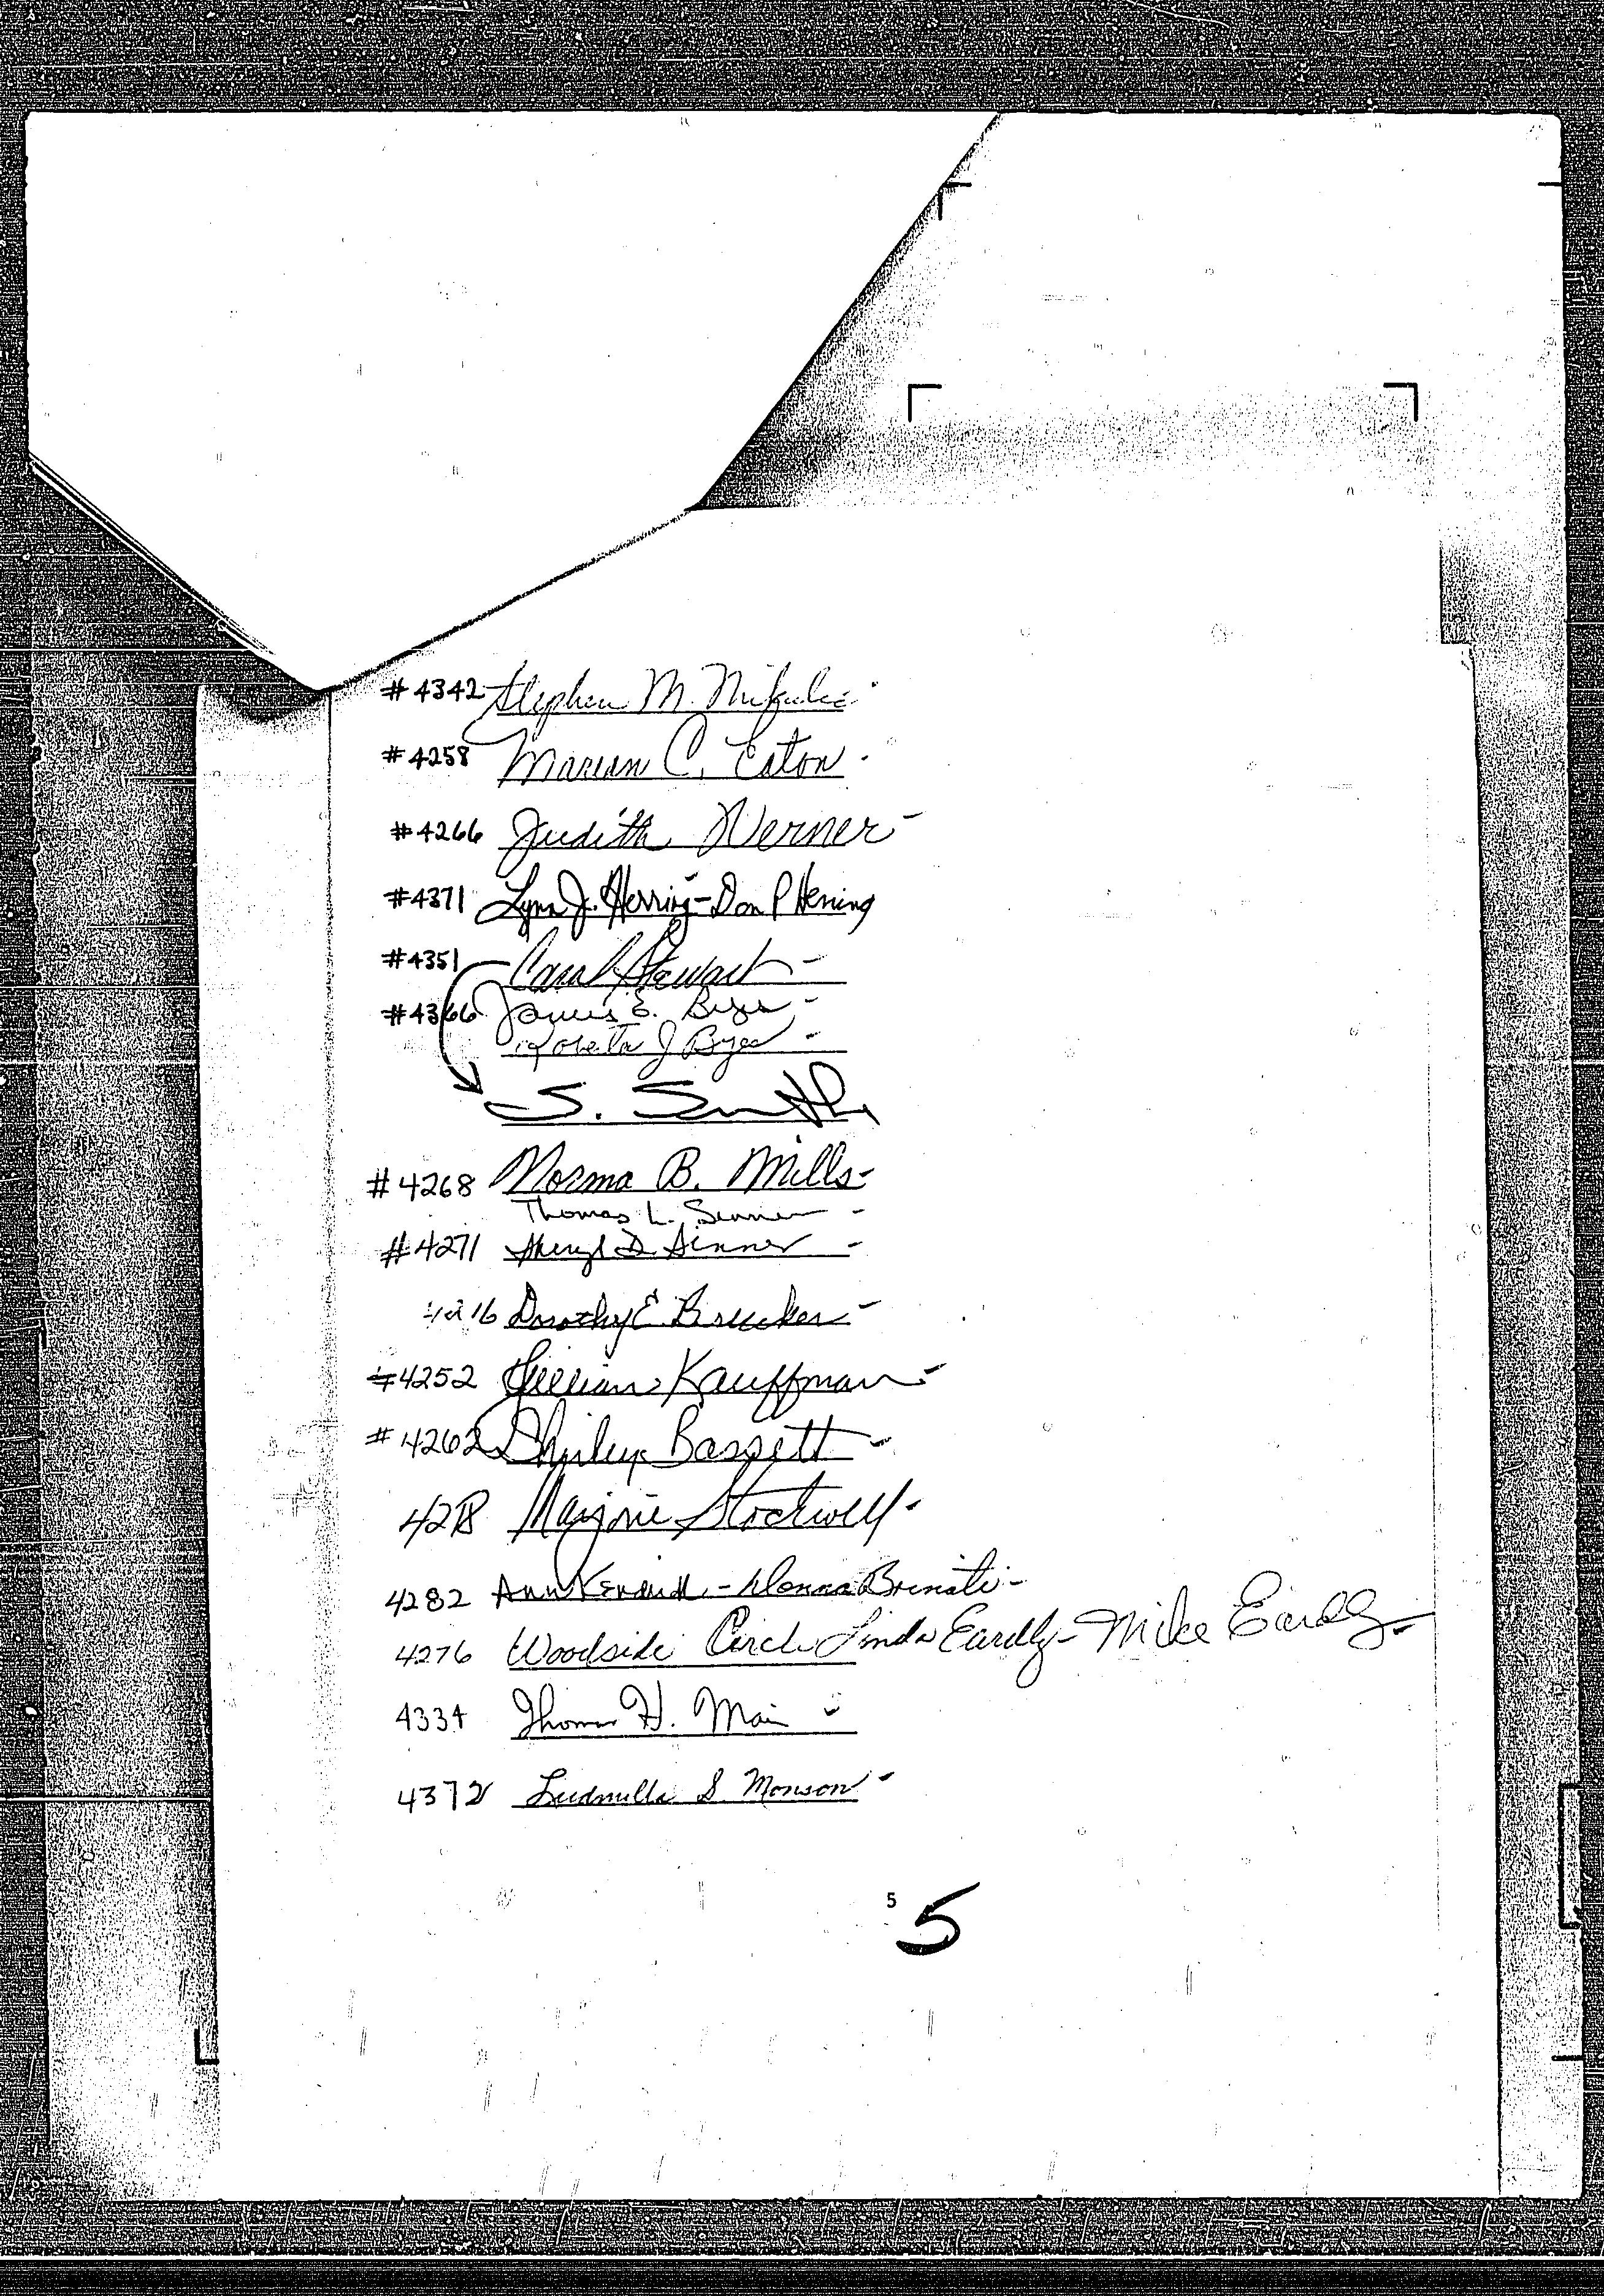 #4342 Stephen M. Mikulic
#4258 Marian C. Eaton
#4266 Judith Werner
#4371 Lynn J. Herring - Don P Herring
#4351 Carol Stewart
#4366 James E. Byer
Roberta J Byer
S. Smith
#4268 Norma B. Mills
Thomas L. Senner
#4271 Sheryl D Senner
Dorothy E Breucker
#4252 Lillian Kauffman
#4262 Shirley Bassett
Marjorie Stockwell
4282 Ann - Donna
4276 Woodside Circle Linda Eardly - Mike Eardly
4334 Thomas H. Mai
4372 Ludmilla S Monson
5
5